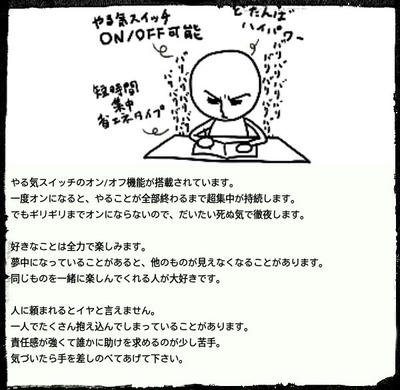 やる気スイッチ
ON/OFF可能
どたんば
ハイパワー
短時間
集中
省エネタイプ
バリバリバリバリ
バリバリバリバリ
やる気スイッチのオン/オフ機能が搭載されています。
一度オンになると、やることが全部終わるまで超集中が持続します。
でもギリギリまでオンにならないので、だいたい死ぬ気で徹夜します。
好きなことは全力で楽しみます。
夢中になっていることがあると、他のものが見えなくなることがあります。
同じものを一緒に楽しんでくれる人が大好きです。
人に頼まれるとイヤと言えません。
一人でたくさん抱え込んでしまっていることがあります。
責任感が強くて誰かに助けを求めるのが少し苦手。
気づいたら手を差しのべてあげて下さい。